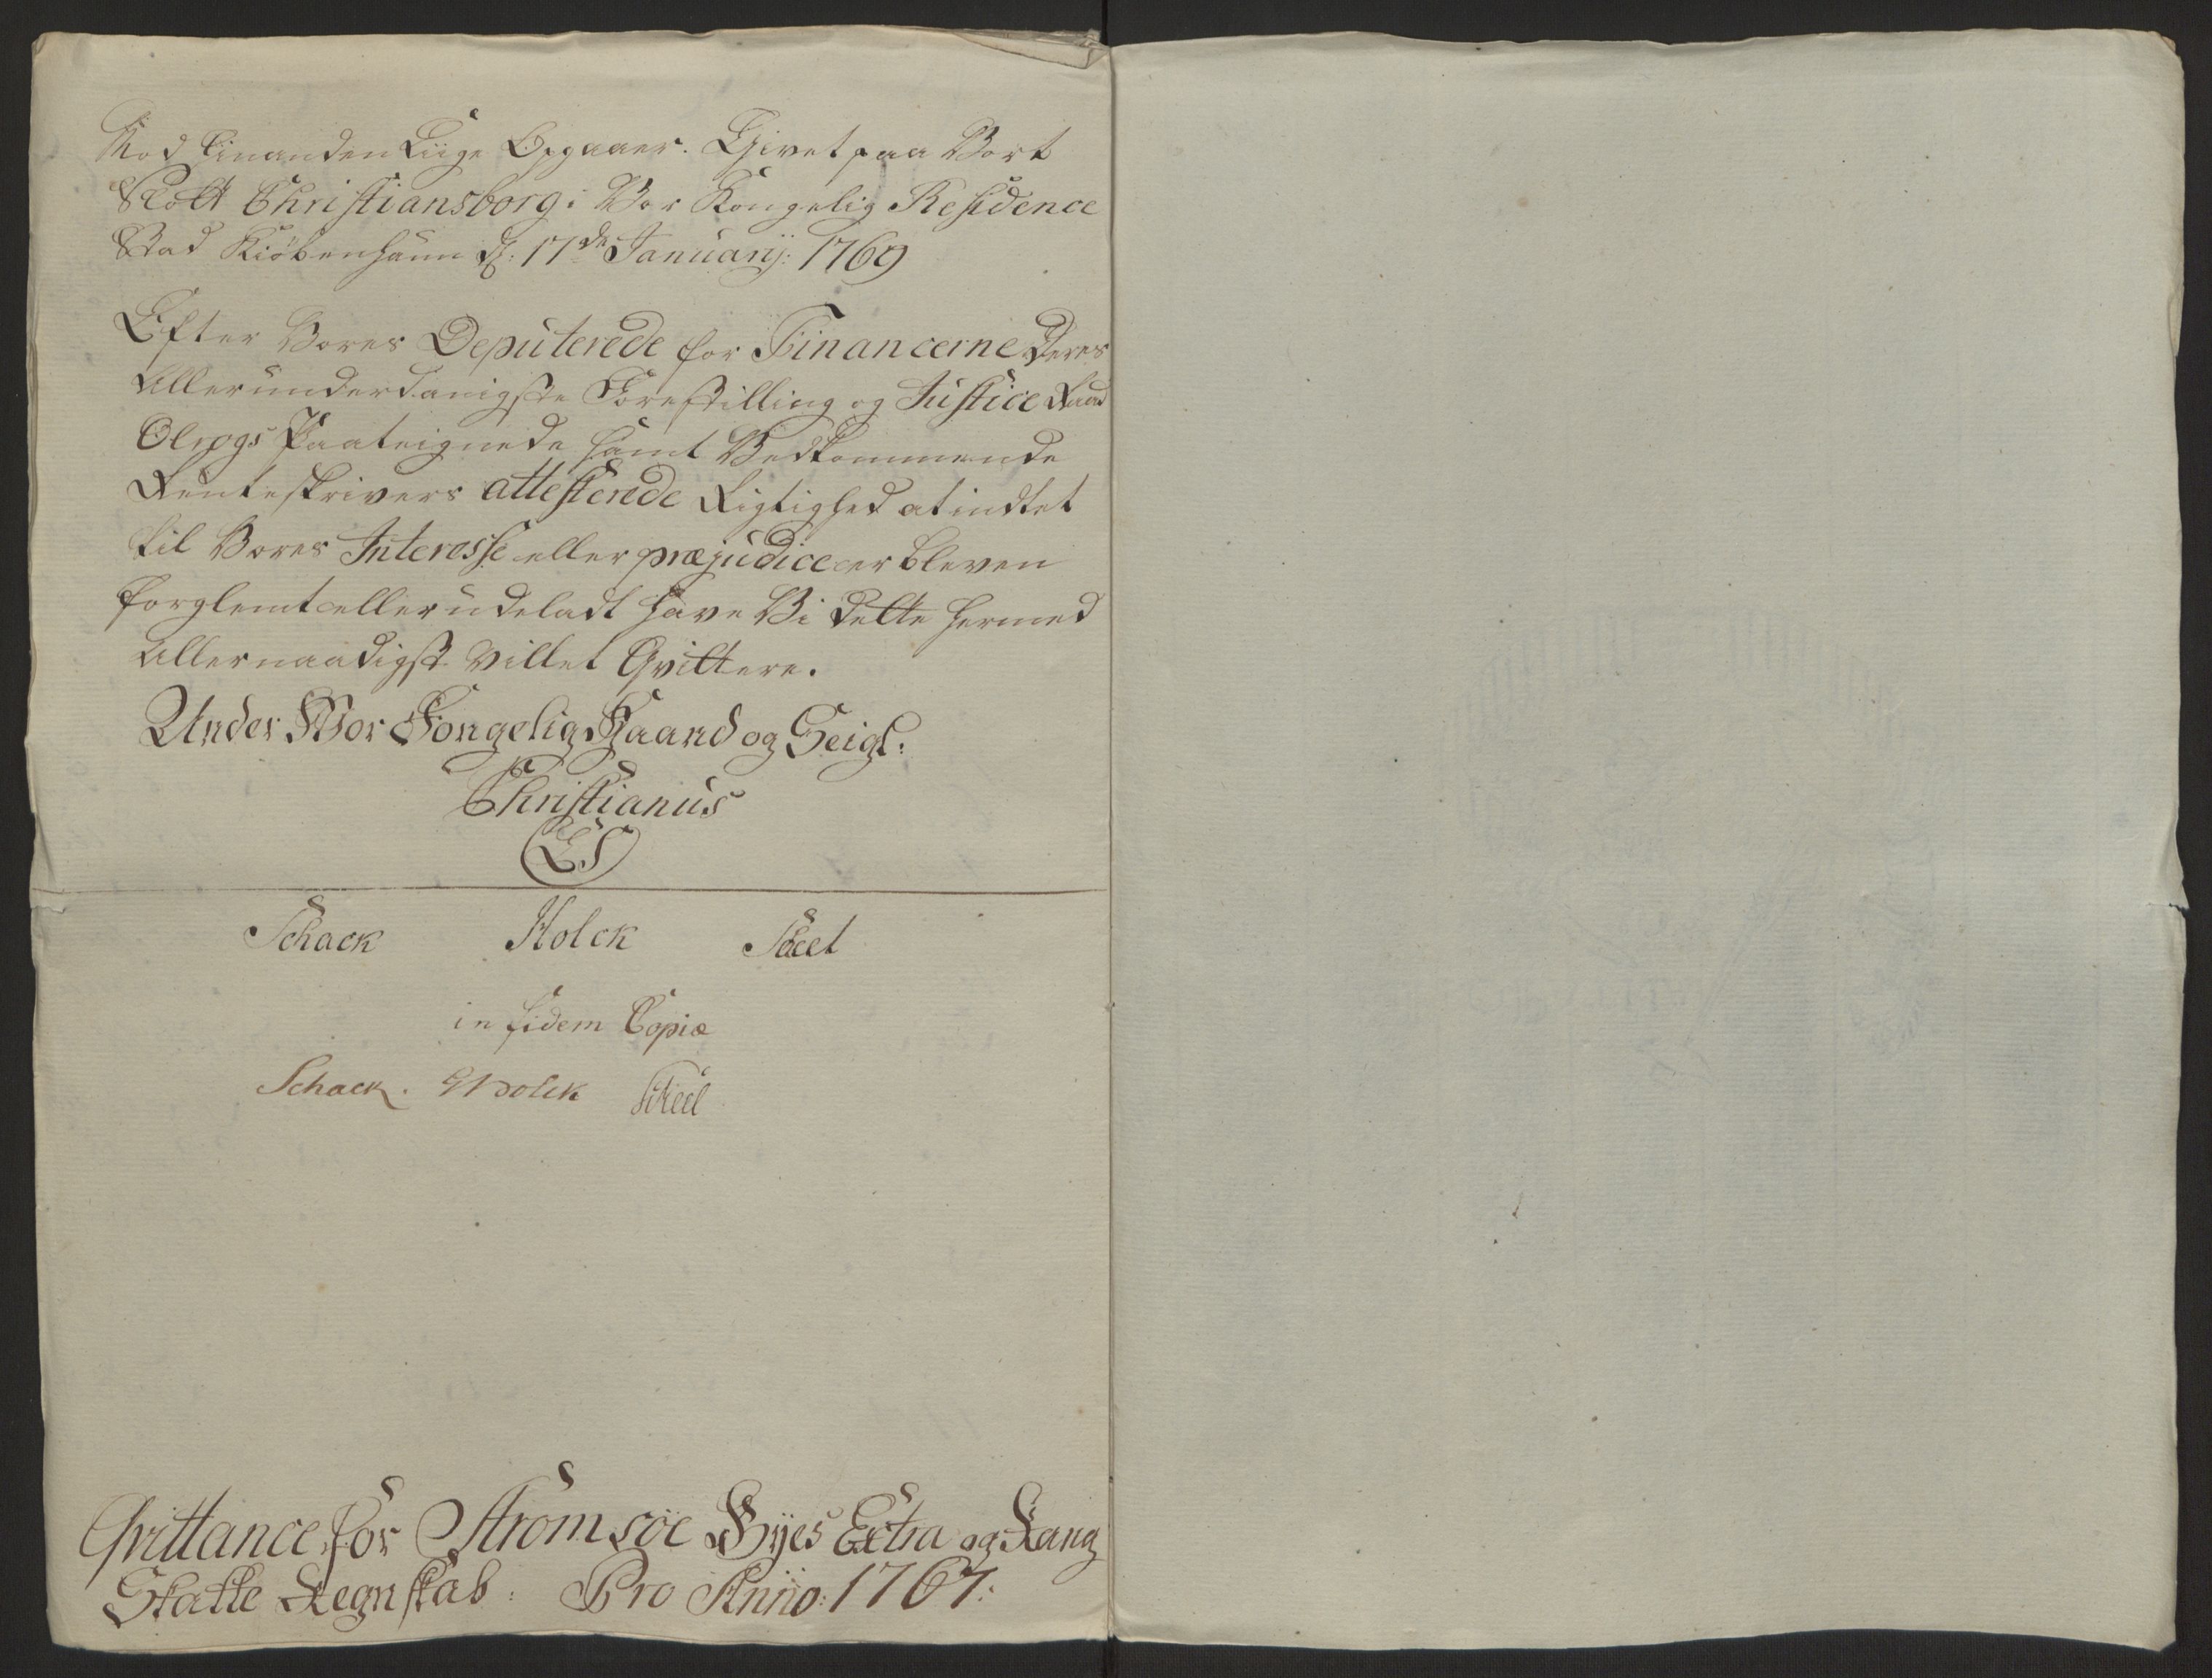 Mod hinanden Liige Opgaaer. Givet paa Vort
Slott Christiansborg i Vor Kongelig Residence
Stad Kiøbenhaun d: 17de Januarij: 1769
Efter Vores Deputerede for Financerne Deres
Allerunderdanigste Forestilling og Justice Raad
Paateignede samt Vedkommende
Renteskrivers attesterede Rigtighed at indtet
til Vores Interesse eller præjudice er bleven
forglemt eller udeladt have Vi dette hermed
Allernaadigst villet Qvittere.
Under Vor Kongelig Haand og Seigl:
Christianus
LS
Schack Holck Skeel
in fidem Copiæ
Schack. Holck Skeel
Qvittance for Strømsøe Byes Extra og Rang
Skatte Regnskab: Pro Anno: 1767: